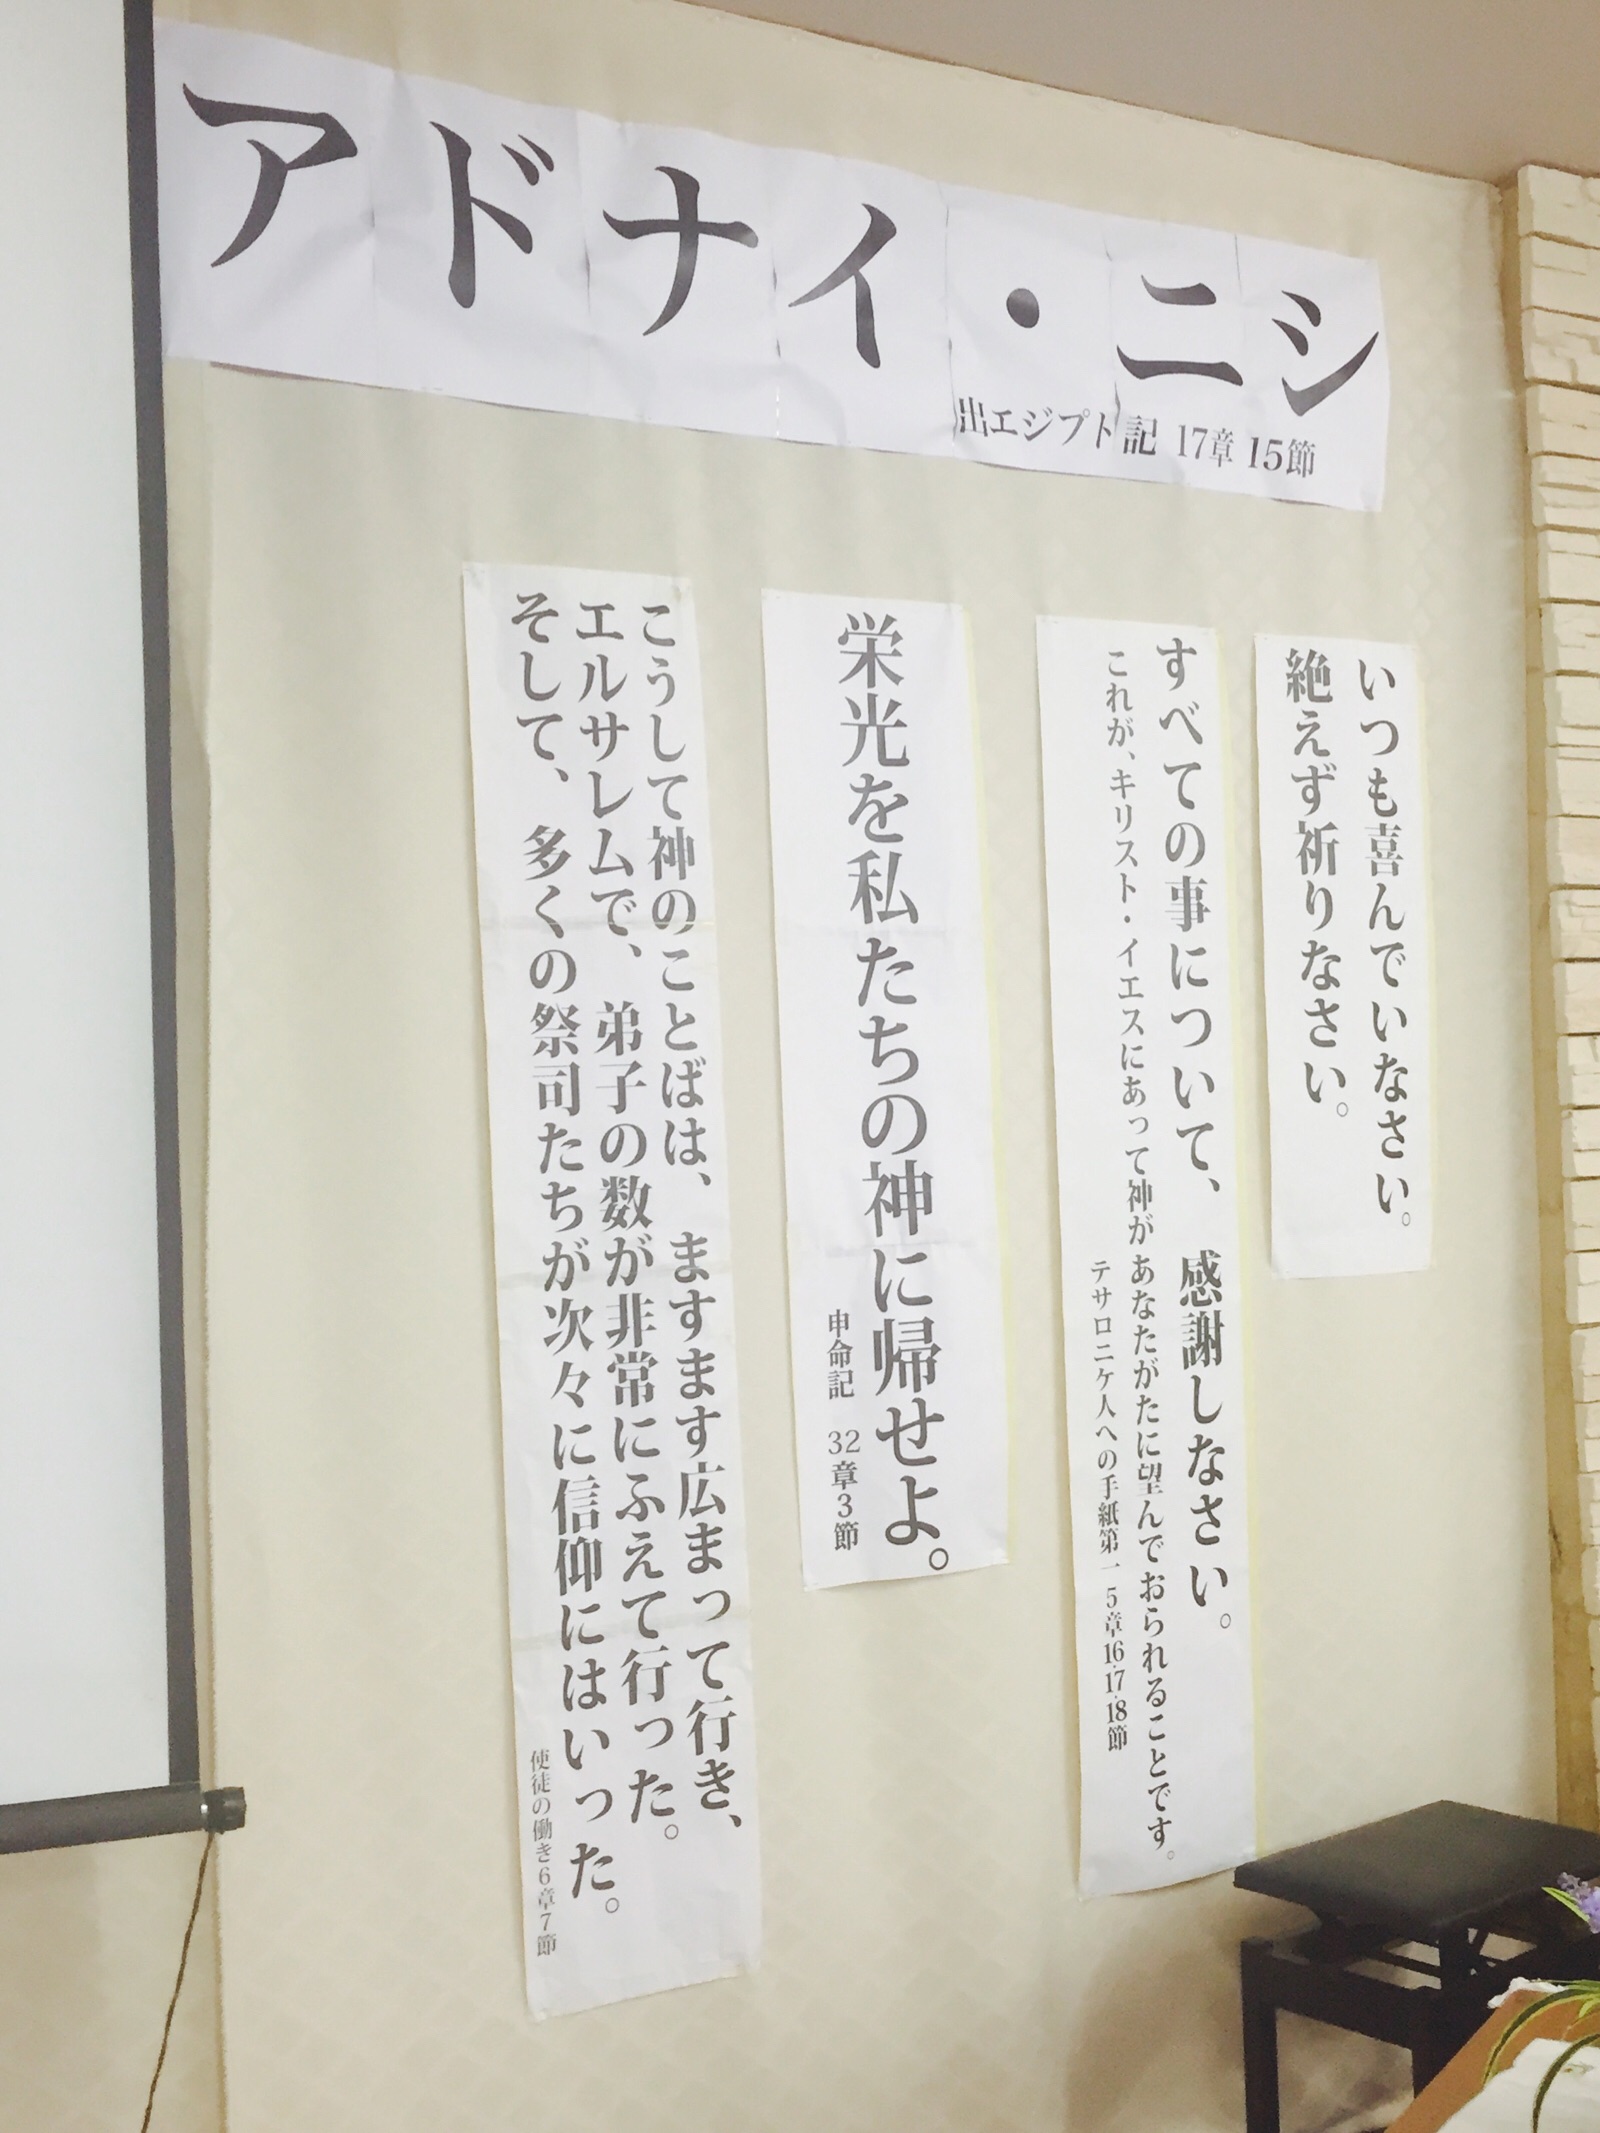 アドナイ・ニシ
出エジプト記 17章 15節
いつも喜んでいなさい。
絶えず祈りなさい。
すべての事について、感謝しなさい。
これが、キリスト・イエスにあって神があなたがたに望んでおられることです。
テサロニケ人への手紙第一 5章16·17·18節
栄光を私たちの神に帰せよ。
申命記 32章3節
こうして神のことばは、ますます広まって行き、
エルサレムで、弟子の数が非常にふえて行った。
そして、多くの祭司たちが次々に信仰にはいった。
使徒の働き6章7節